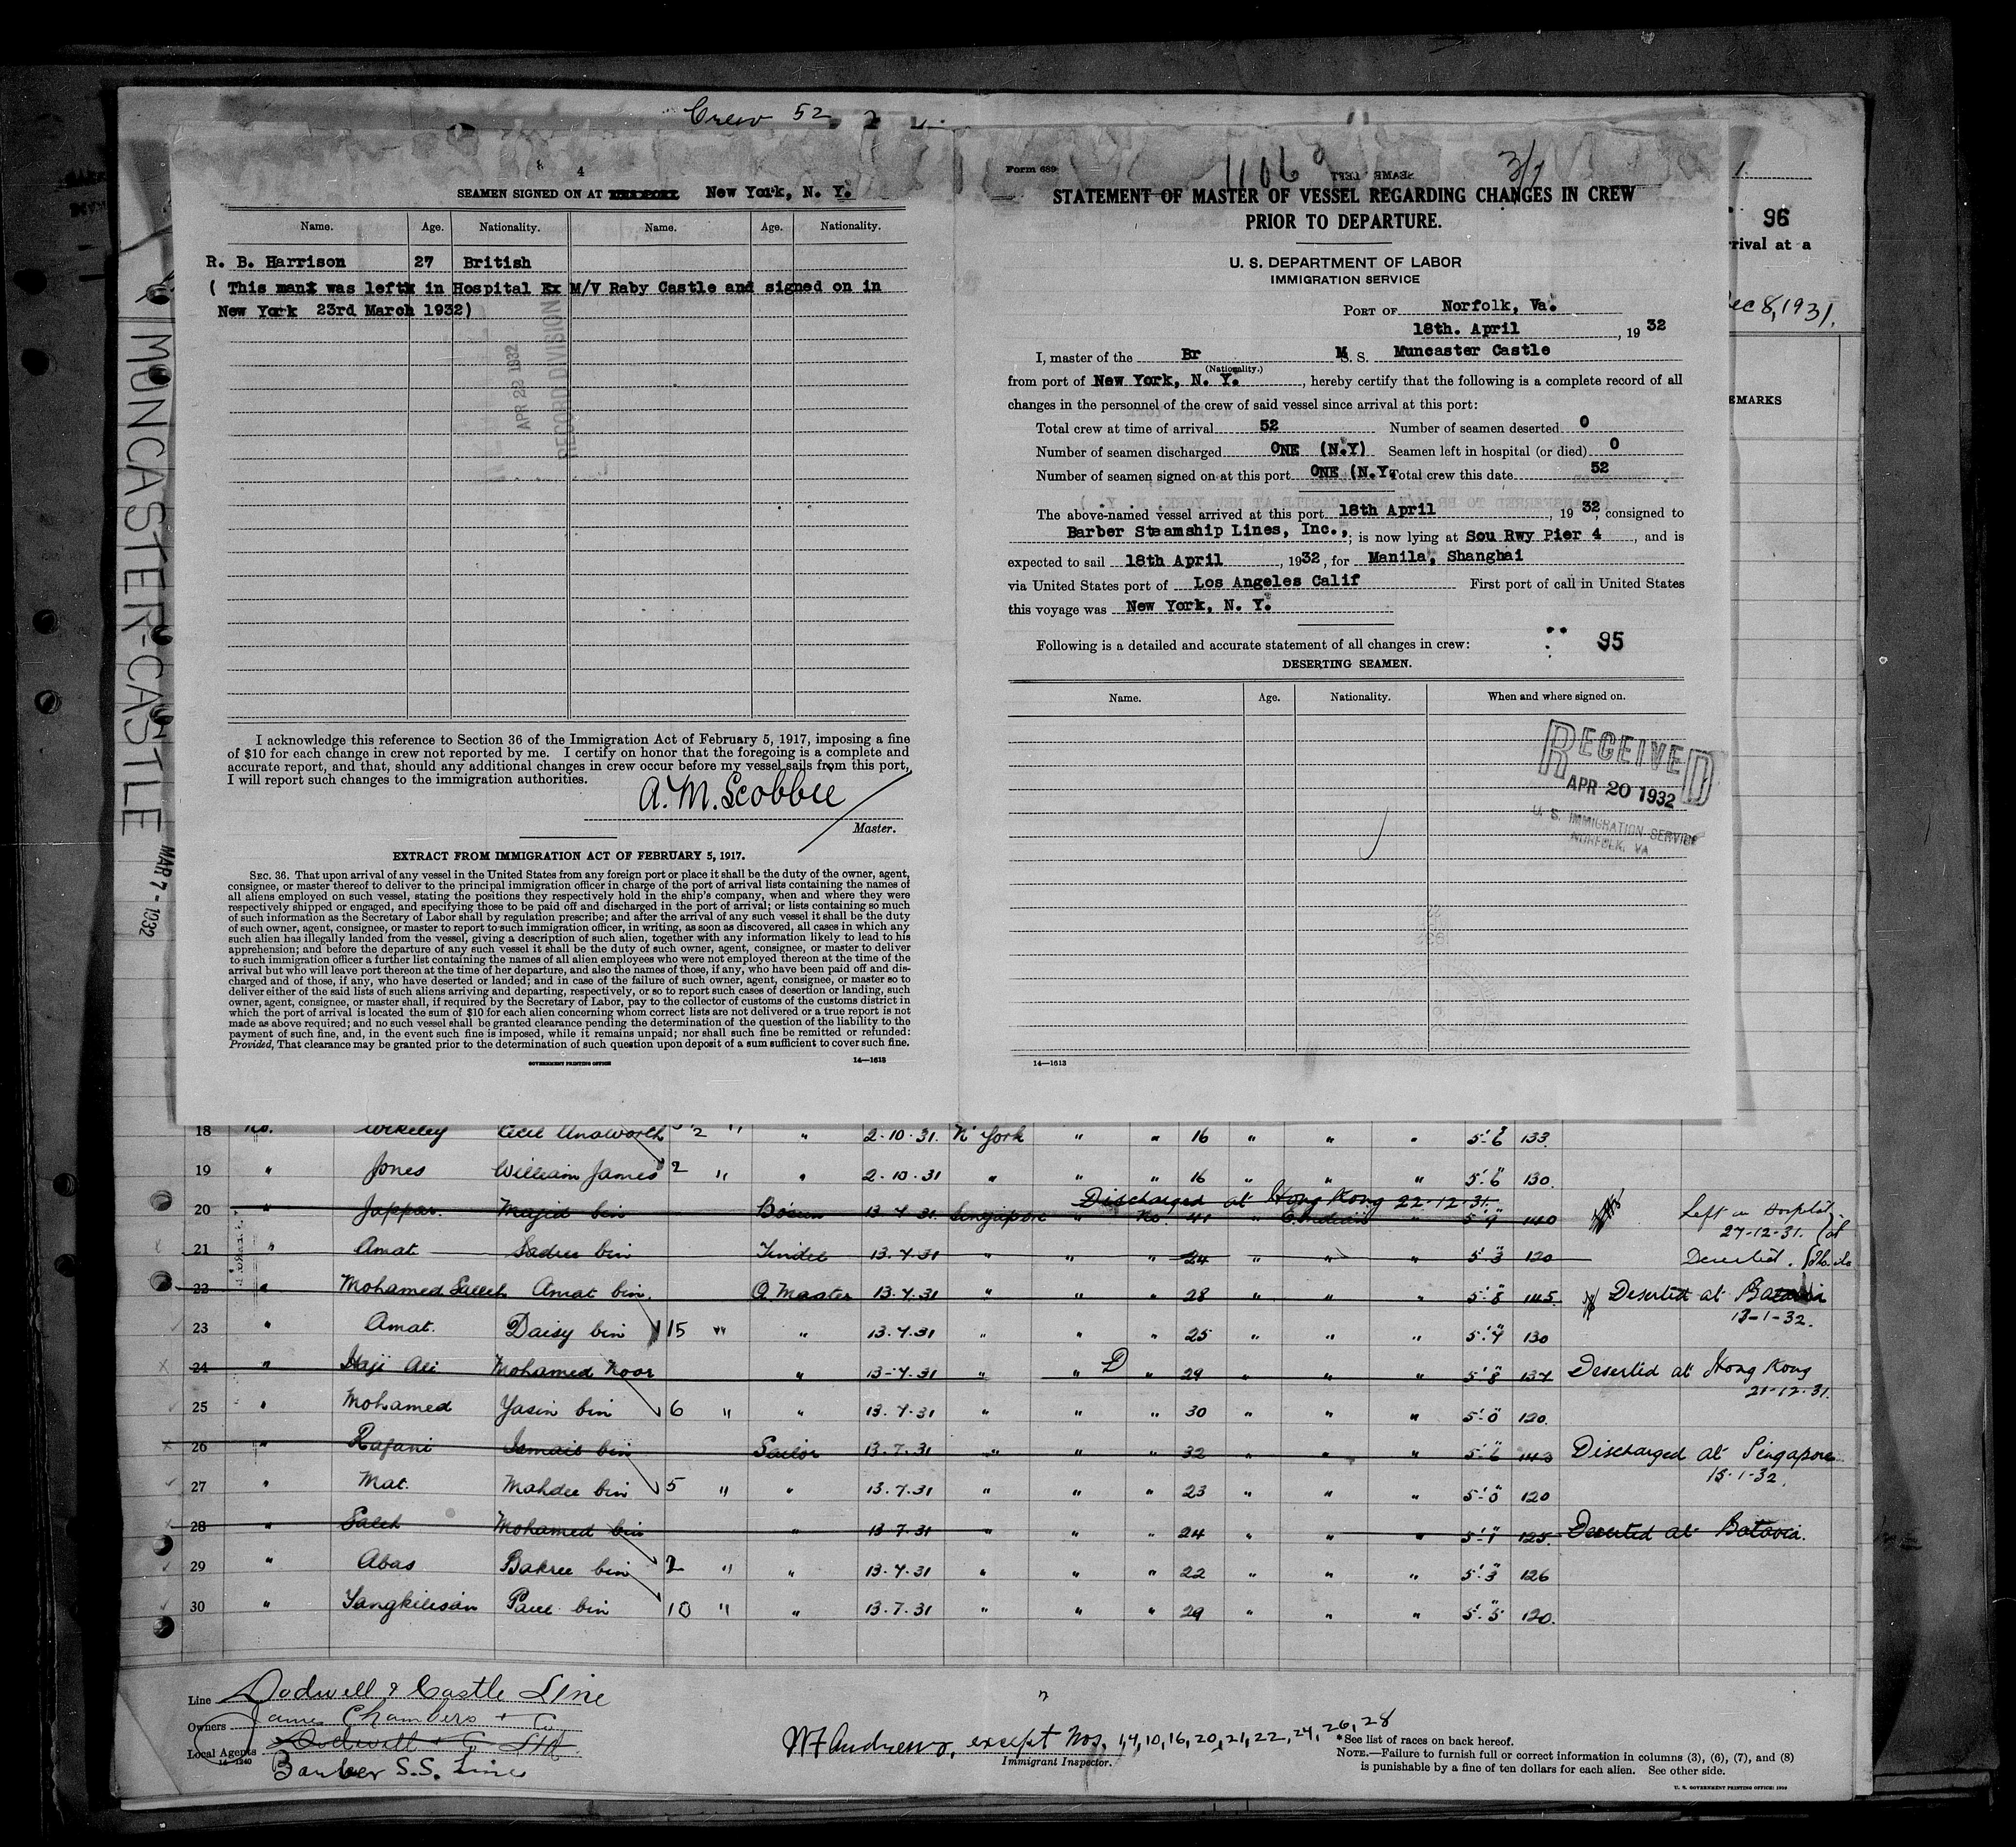 Crew 52
4
SEAMEN SIGNED ON AT THIS PORT New York, N. Y.
Name. Age. Nationality. Name. Age. Nationality.
R. B. Harrison 27 British
( This man was left in Hospital Ex M/V Raby Castle and signed on in
New York 23rd March 1932)
APR 22 1932
RECORD DIVISION
I acknowledge this reference to Section 36 of the Immigration Act of February 5, 1917, imposing a fine
of $10 for each change in crew not reported by me. I certify on honor that the foregoing is a complete and
accurate report, and that, should any additional changes in crew occur before my vessel sails from this port,
I will report such changes to the immigration authorities.
A. M. Scobbie
Master.
EXTRACT FROM IMMIGRATION ACT OF FEBRUARY 5, 1917.
SEC. 36. That upon arrival of any vessel in the United States from any foreign port or place it shall be the duty of the owner, agent,
consignee, or master thereof to deliver to the principal immigration officer in charge of the port of arrival lists containing the names of
all aliens employed on such vessel, stating the positions they respectively hold in the ship's company, when and where they were
respectively shipped or engaged, and specifying those to be paid off and discharged in the port of arrival; or lists containing so much
of such information as the Secretary of Labor shall by regulation prescribe; and after the arrival of any such vessel it shall be the duty
of such owner, agent, consignee, or master to report to such immigration officer, in writing, as soon as discovered, all cases in which any
such alien has illegally landed from the vessel, giving a description of such alien, together with any information likely to lead to his
apprehension; and before the departure of any such vessel it shall be the duty of such owner, agent, consignee, or master to deliver
to such immigration officer a further list containing the names of all alien employees who were not employed thereon at the time of the
arrival but who will leave port thereon at the time of her departure, and also the names of those, if any, who have been paid off and dis-
charged and of those, if any, who have deserted or landed; and in case of the failure of such owner, agent, consignee, or master so to
deliver either of the said lists of such aliens arriving and departing, respectively, or so to report such cases of desertion or landing, such
owner, agent, consignee, or master shall, if required by the Secretary of Labor, pay to the collector of customs of the customs district in
which the port of arrival is located the sum of $10 for each alien concerning whom correct lists are not delivered or a true report is not
made as above required; and no such vessel shall be granted clearance pending the determination of the question of the liability to the
payment of such fine, and, in the event such fine is imposed, while it remains unpaid; nor shall such fine be remitted or refunded:
Provided, That clearance may be granted prior to the determination of such question upon deposit of a sum sufficient to cover such fine.
GOVERNMENT PRINTING OFFICE 14—1613
Form 689
1106 3/7
STATEMENT OF MASTER OF VESSEL REGARDING CHANGES IN CREW
PRIOR TO DEPARTURE.
U. S. DEPARTMENT OF LABOR
IMMIGRATION SERVICE
PORT OF Norfolk, Va.
18th. April, 1932
I, master of the Br M S. S. Muncaster Castle
(Nationality.)
from port of New York, N. Y., hereby certify that the following is a complete record of all
changes in the personnel of the crew of said vessel since arrival at this port:
Total crew at time of arrival 52 Number of seamen deserted 0
Number of seamen discharged ONE (N.Y) Seamen left in hospital (or died) 0
Number of seamen signed on at this port ONE (N.Y. Total crew this date 52
The above-named vessel arrived at this port 18th April, 1932, consigned to
Barber Steamship Lines, Inc.,; is now lying at Sou Rwy Pier 4, and is
expected to sail 18th April, 1932, for Manila, Shanghai
via United States port of Los Angeles Calif First port of call in United States
this voyage was New York, N. Y.
Following is a detailed and accurate statement of all changes in crew: 95
DESERTING SEAMEN.
Name. Age. Nationality. When and where signed on.
RECEIVED
APR 20 1932
U. S. IMMIGRATION SERVICE
NORFOLK, VA
14—1613
1.
96
rival at a
ec 8, 1931.
EMARKS
MUNCASTER-CASTLE
MAR 7 - 1932
18 no. Wikeley Cecil 2 " " 2-10-31. N York " " 16 " " " 5'-6" 133.
19 " Jones William James 2 " " 2-10-31 " " " 16 " " " 5'-6" 130.
Discharged at Hong Kong 22-12-31.
20 " Jappar. Majid bin Bosun 13-7-31. Singapore " No. 41 " " 5'-9" 140
Left in Hospital
27-12-31.
21 " Amat Sadin bin Tindel 13-7-31 " " " 24 " " " 5'-3" 120 Deserted.
22 " Mohamed Salleh Amat bin. Q. Master 13-7-31 " " " 28 " " " 5'-8" 145. Deserted at Batavia
13-1-32.
23 " Amat. Daisy bin 15 " " 13-7-31 " " " 25 " " " 5'-4" 130
24 " Haji Ali Mohamed Noor " 13-7-31 " " D " 29 " " " 5'-8" 134 Deserted at Hong Kong
21-12-31.
25 " Mohamed Yasin bin 6 " " 13-7-31 " " " 30 " " " 5'-0" 120.
26 " Rajani Ismail bin Sailor 13-7-31 " " " 32 " " " 5'-6" 143 Discharged at Singapore
15-1-32.
27 " Mat. Mahdee bin 5 " " 13-7-31 " " " 23 " " " 5'-0" 120
28 " Saleh Mohamed bin " 13-7-31 " " " 24 " " " 5'-1" 125. Deserted at Batavia.
29 " Abas Bakree bin 2 " " 13-7-31 " " " 22 " " " 5'-3" 126
30 " Sangkilisan Paul bin 10 " " 13-7-31 " " " 29 " " " 5'-5" 120.
Line Dodwell & Castle Line
Owners James Chambers & Co
Local Agents Dodwell & Co Ltd.
14—1240
Barber S.S. Lines
W F Andrews, except Nos. 1,4,10,16,20,21,22,24,26,28
Immigrant Inspector.
*See list of races on back hereof.
NOTE.—Failure to furnish full or correct information in columns (3), (6), (7), and (8)
is punishable by a fine of ten dollars for each alien. See other side.